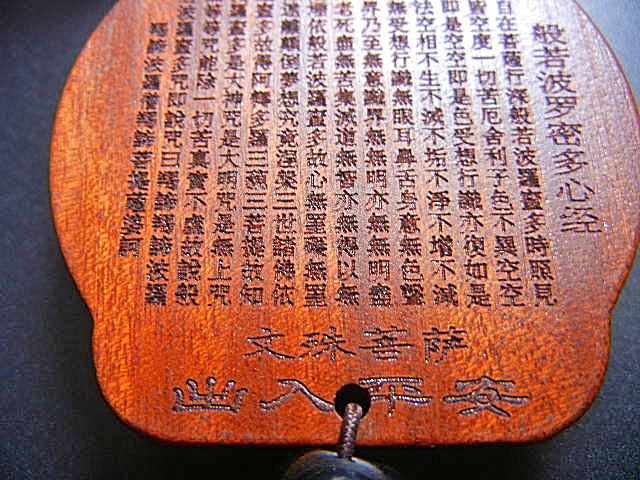 般若波罗密多心经
自在菩薩行深般若波羅蜜多時照見
皆空度一切苦厄舍利子色不異空空
即是空空即是色受想行識亦復如是
法空相不生不滅不垢不淨不增不減
無受想行識無眼耳鼻舌身意無色聲
界乃至無意識界無無明亦無無明盡
老死盡無苦集滅道無智亦無得以無
埵依般若波羅蜜多故心無罣礙無罣
遠離顛倒夢想究竟涅槃三世諸佛依
蜜多故得阿耨多羅三藐三菩提故知
蜜多是大神咒是大明咒是無上咒
等等咒能除一切苦真實不虛故說般
波羅蜜多咒即說咒曰揭諦揭諦波羅
揭諦波羅僧揭諦菩提薩婆訶
文珠菩萨
出入平安